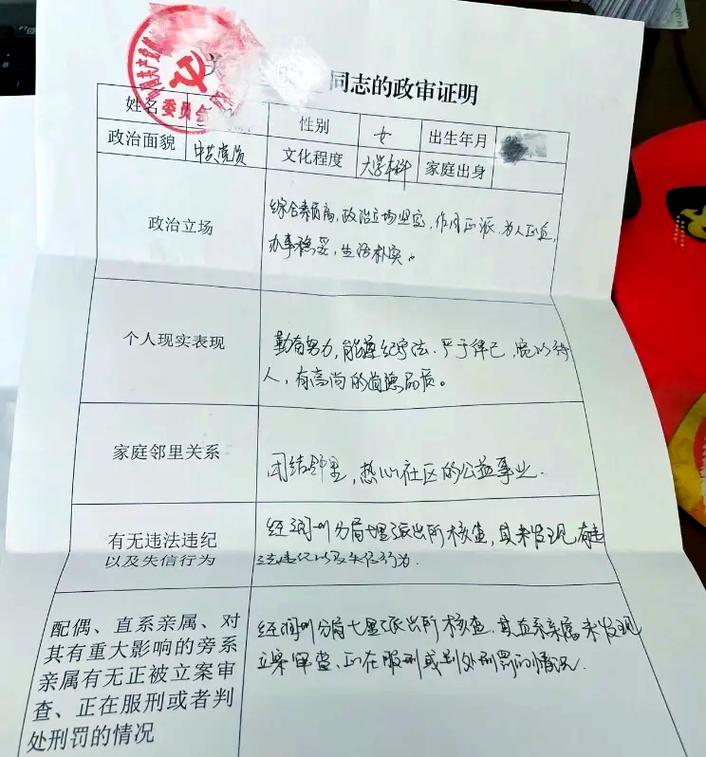 同志的政审证明
姓名
性别 女 出生年月
政治面貌 中共党员 文化程度 大学本科 家庭出身
政治立场
综合素质高,政治立场坚定,作风正派,为人正直,
办事稳妥,生活朴实。
个人现实表现
勤奋努力,能遵纪守法.严于律己,宽以待
人,有高尚的道德品质。
家庭邻里关系
团结邻里,热心社区的公益事业.
有无违法违纪
以及失信行为
经润州分局七里派出所核查,其未发现有违
法违纪以及失信行为.
配偶、直系亲属、对
其有重大影响的旁系
亲属有无正被立案审
查、正在服刑或者判
处刑罚的情况
经润州分局七里派出所核查.其直系亲属未发现
立案审查、正在服刑或判处刑罚的情况.
委员会